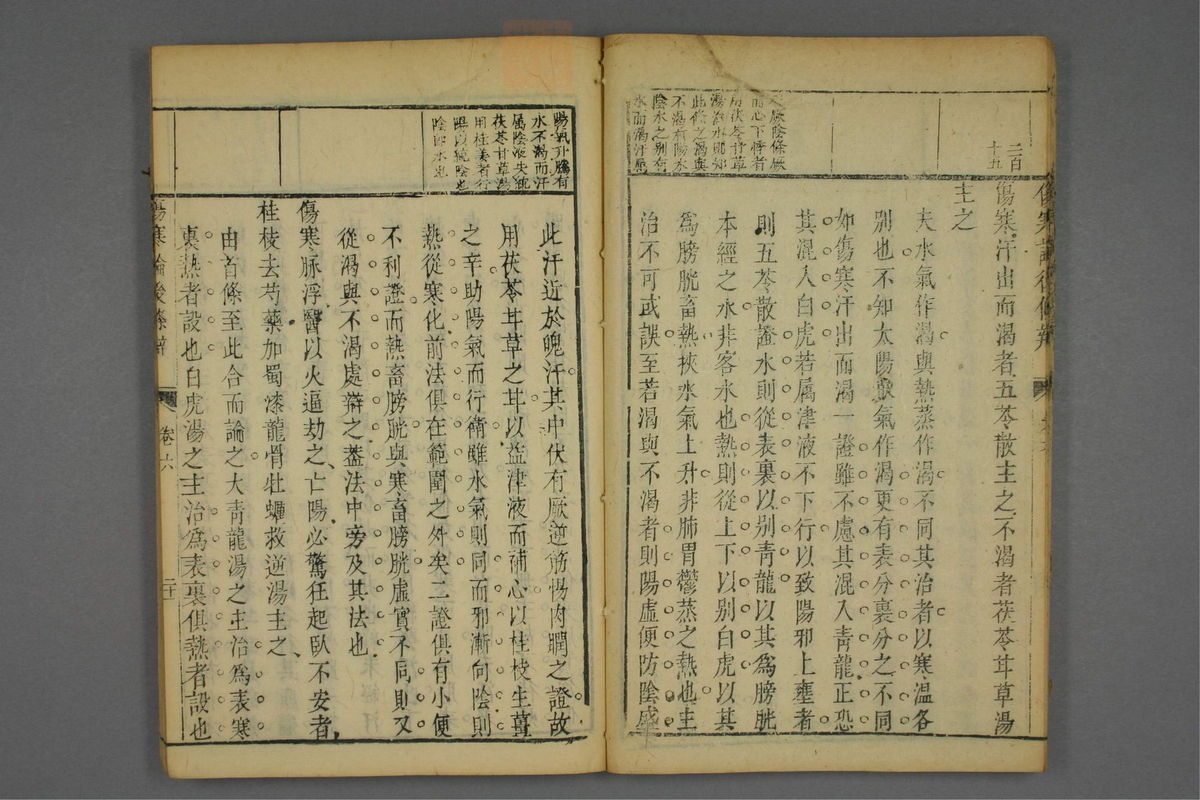 傷寒論後條辨
二百
十五
傷寒汗出而渴者五苓散主之不渴者茯苓甘草湯
主之
夫水氣作渴與熱蒸作渴不同其治者以寒溫各
別也不知太陽水氣作渴更有表分裏分之不同
如傷寒汗出而渴一證雖不慮其混入青龍正恐
其混入白虎若屬津液不下行以致陽邪上壅者
則五苓散證水則從表裏以别青龍以其爲膀胱
本經之水非客水也熱則從上下以别白虎以其
爲膀胱畜熱挾水氣上升非肺胃鬱蒸之熱也主
治不可或誤至若渴與不渴者則陽虛便防陰盛
厥陰條厥
而心下悸者
用茯苓甘草
湯治水即知
此條之渴與
不渴有陽水
陰水之别有
水而渴汗屬
陽氣升騰有
水不渴而汗
屬陰液失統
茯苓甘草湯
用桂姜者行
陽以統陰也
陰即水也
此汗近於魄汗其中伏有厥逆筋惕肉瞤之證故
用茯苓甘草之甘以益津液而補心以桂枝生薑
之辛助陽氣而行衛雖水氣則同而邪漸向陰則
熱從寒化前法俱在範圍之外矣二證俱有小便
不利證而熱畜膀胱與寒畜膀胱虛實不同則又
從渴與不渴處辯之葢法中旁及其法也
傷寒脉浮醫以火逼劫之亡陽必驚狂起臥不安者
桂枝去芍藥加蜀漆龍骨牡蠣救逆湯主之
由首條至此合而論之大青龍湯之主治爲表寒
裏熱者設也白虎湯之主治爲表裏俱熱者設也
傷寒論後條辨
卷六
二十